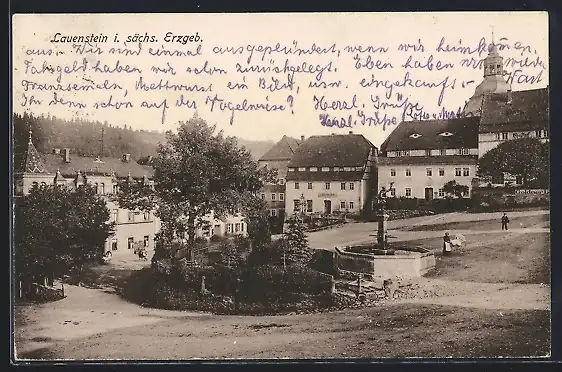 Lauenstein i. sächs. Erzgeb.
aus. Wir sind einmal ausgeplündert, wenn wir heimkommen.
Fahrgeld haben wir schon zurückgelegt. Eben haben wir
Franzsemeln, Mettwurst ein Bild, usw. eingekauft.
Ihr denn schon auf der Vogelwiese? Herzl. Grüße
Herzl. Grüße